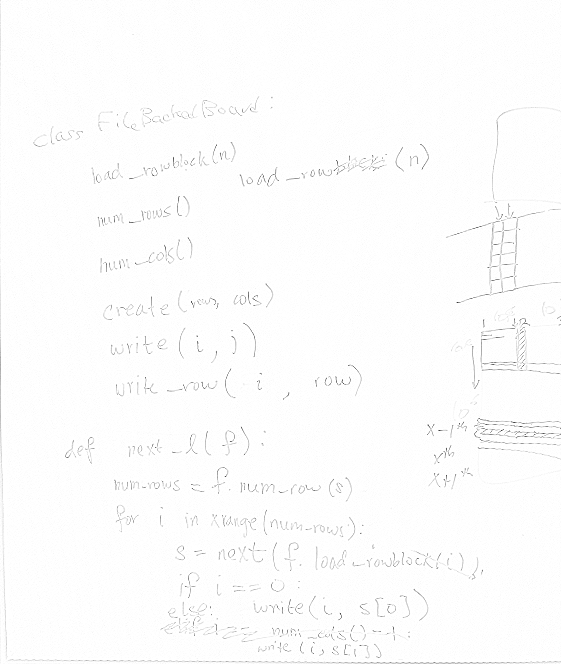 class FileBackedBoard:
load_rowblock(n)
load_row (n)
num_rows()
num_cols()
create(rows, cols)
write(i, j)
write_row(i, row)
def next_l(f):
num_rows = f.num_row(s)
for i in xrange(num-rows):
s = next(f.load_rowblock(i),
if i == 0:
else: write(i, s[0])
num_cols()-1:
write(i, s[i])
1 2
X-1th
Xth
X+1th